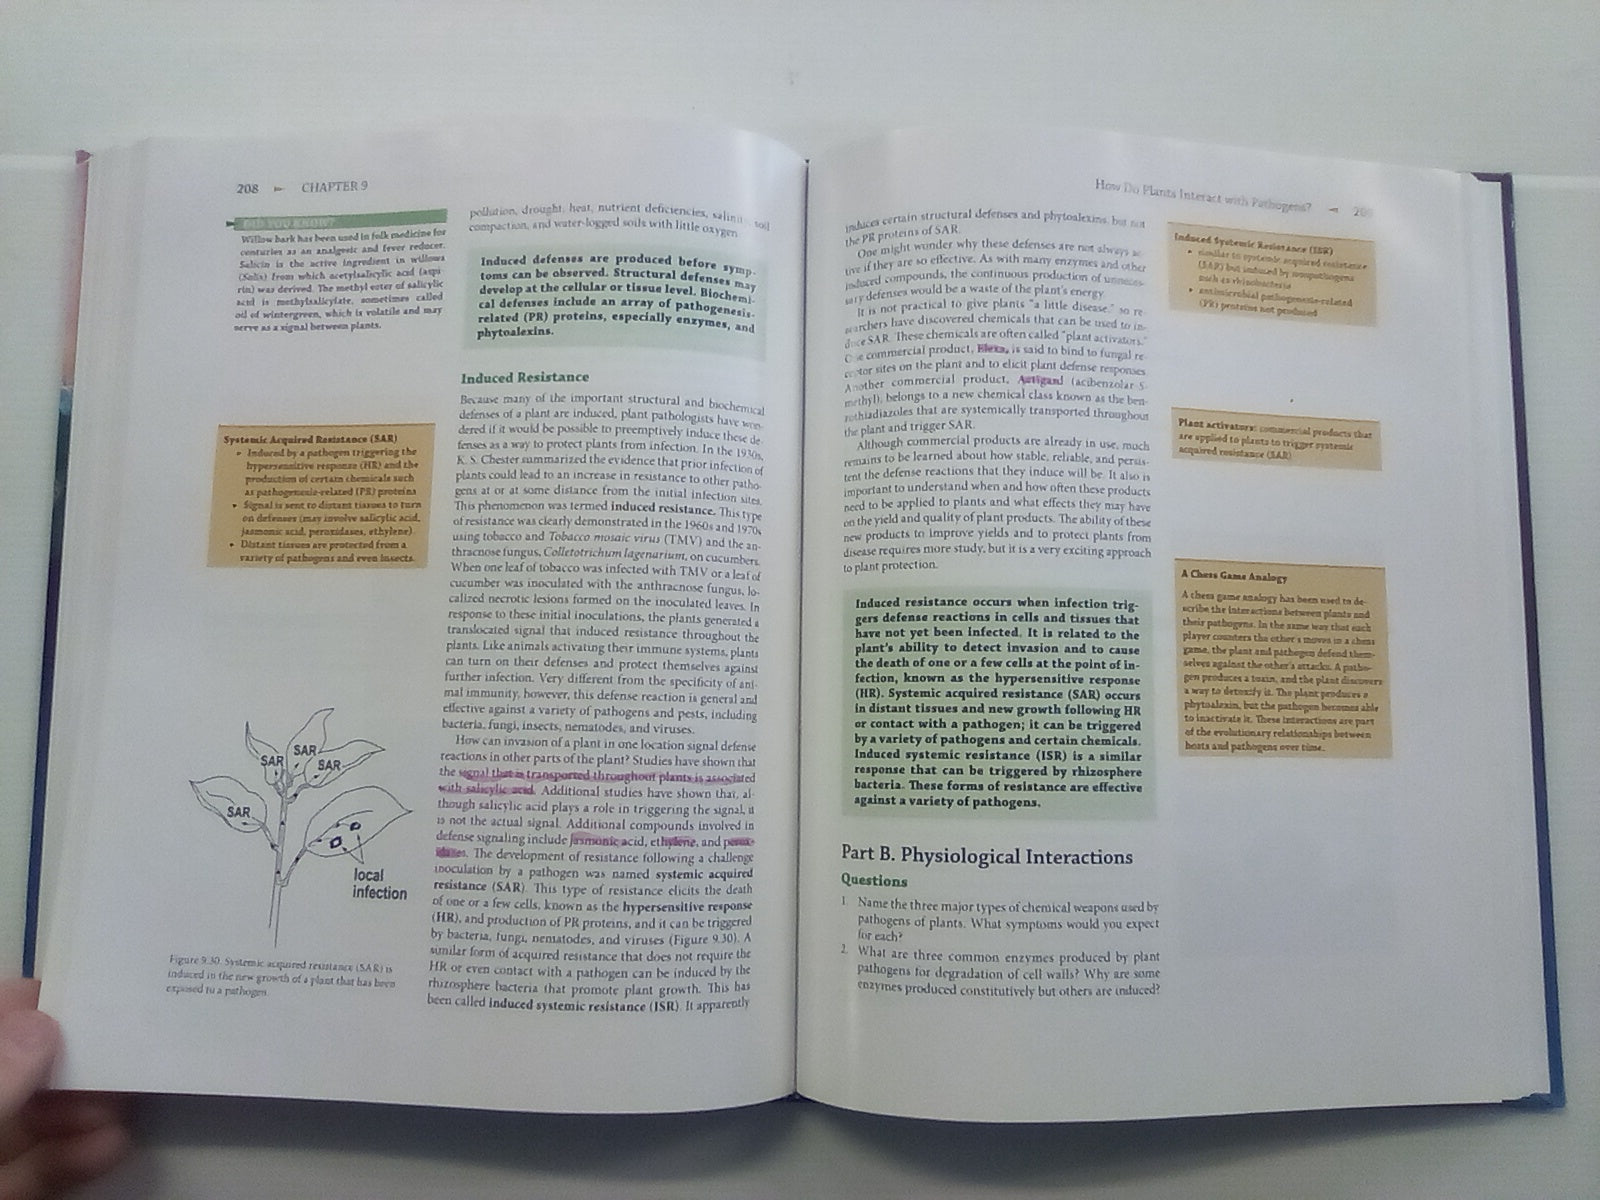 208 ► CHAPTER 9
DID YOU KNOW?
Willow bark has been used in folk medicine for
centuries as an analgesic and fever reducer.
Salicin is the active ingredient in willows
(Salix) from which acetylsalicylic acid (aspi-
rin) was derived. The methyl ester of salicylic
acid is methylsalicylate, sometimes called
oil of wintergreen, which is volatile and may
serve as a signal between plants.
Systemic Acquired Resistance (SAR)
• Induced by a pathogen triggering the
hypersensitive response (HR) and the
production of certain chemicals such
as pathogenesis-related (PR) proteins
• Signal is sent to distant tissues to turn
on defenses (may involve salicylic acid,
jasmonic acid, peroxidases, ethylene)
• Distant tissues are protected from a
variety of pathogens and even insects.
SAR
SAR
SAR
SAR
local
infection
Figure 9.30. Systemic acquired resistance (SAR) is
induced in the new growth of a plant that has been
exposed to a pathogen.
pollution, drought, heat, nutrient deficiencies, salinity, soil
compaction, and water-logged soils with little oxygen.
Induced defenses are produced before symp-
toms can be observed. Structural defenses may
develop at the cellular or tissue level. Biochemi-
cal defenses include an array of pathogenesis-
related (PR) proteins, especially enzymes, and
phytoalexins.
Induced Resistance
Because many of the important structural and biochemical
defenses of a plant are induced, plant pathologists have won-
dered if it would be possible to preemptively induce these de-
fenses as a way to protect plants from infection. In the 1930s,
K. S. Chester summarized the evidence that prior infection of
plants could lead to an increase in resistance to other patho-
gens at or at some distance from the initial infection sites.
This phenomenon was termed induced resistance. This type
of resistance was clearly demonstrated in the 1960s and 1970s
using tobacco and Tobacco mosaic virus (TMV) and the an-
thracnose fungus, Colletotrichum lagenarium, on cucumbers.
When one leaf of tobacco was infected with TMV or a leaf of
cucumber was inoculated with the anthracnose fungus, lo-
calized necrotic lesions formed on the inoculated leaves. In
response to these initial inoculations, the plants generated a
translocated signal that induced resistance throughout the
plants. Like animals activating their immune systems, plants
can turn on their defenses and protect themselves against
further infection. Very different from the specificity of ani-
mal immunity, however, this defense reaction is general and
effective against a variety of pathogens and pests, including
bacteria, fungi, insects, nematodes, and viruses.
How can invasion of a plant in one location signal defense
reactions in other parts of the plant? Studies have shown that
the signal that is transported throughout plants is associated
with salicylic acid. Additional studies have shown that, al-
though salicylic acid plays a role in triggering the signal, it
is not the actual signal. Additional compounds involved in
defense signaling include jasmonic acid, ethylene, and perox-
idases. The development of resistance following a challenge
inoculation by a pathogen was named systemic acquired
resistance (SAR). This type of resistance elicits the death
of one or a few cells, known as the hypersensitive response
(HR), and production of PR proteins, and it can be triggered
by bacteria, fungi, nematodes, and viruses (Figure 9.30). A
similar form of acquired resistance that does not require the
HR or even contact with a pathogen can be induced by the
rhizosphere bacteria that promote plant growth. This has
been called induced systemic resistance (ISR). It apparently
How Do Plants Interact with Pathogens? ◄ 209
induces certain structural defenses and phytoalexins, but not
the PR proteins of SAR.
One might wonder why these defenses are not always ac-
tive if they are so effective. As with many enzymes and other
induced compounds, the continuous production of unneces-
sary defenses would be a waste of the plant's energy.
It is not practical to give plants "a little disease," so re-
searchers have discovered chemicals that can be used to in-
duce SAR. These chemicals are often called "plant activators."
One commercial product, Elexa, is said to bind to fungal re-
ceptor sites on the plant and to elicit plant defense responses.
Another commercial product, Actigard (acibenzolar-S-
methyl), belongs to a new chemical class known as the ben-
zothiadiazoles that are systemically transported throughout
the plant and trigger SAR.
Although commercial products are already in use, much
remains to be learned about how stable, reliable, and persis-
tent the defense reactions that they induce will be. It also is
important to understand when and how often these products
need to be applied to plants and what effects they may have
on the yield and quality of plant products. The ability of these
new products to improve yields and to protect plants from
disease requires more study, but it is a very exciting approach
to plant protection.
Induced resistance occurs when infection trig-
gers defense reactions in cells and tissues that
have not yet been infected. It is related to the
plant's ability to detect invasion and to cause
the death of one or a few cells at the point of in-
fection, known as the hypersensitive response
(HR). Systemic acquired resistance (SAR) occurs
in distant tissues and new growth following HR
or contact with a pathogen; it can be triggered
by a variety of pathogens and certain chemicals.
Induced systemic resistance (ISR) is a similar
response that can be triggered by rhizosphere
bacteria. These forms of resistance are effective
against a variety of pathogens.
Part B. Physiological Interactions
Questions
1. Name the three major types of chemical weapons used by
pathogens of plants. What symptoms would you expect
for each?
2. What are three common enzymes produced by plant
pathogens for degradation of cell walls? Why are some
enzymes produced constitutively but others are induced?
Induced Systemic Resistance (ISR)
• similar to systemic acquired resistance
(SAR) but induced by nonpathogens
such as rhizobacteria
• antimicrobial pathogenesis-related
(PR) proteins not produced
Plant activators: commercial products that
are applied to plants to trigger systemic
acquired resistance (SAR)
A Chess Game Analogy
A chess game analogy has been used to de-
scribe the interactions between plants and
their pathogens. In the same way that each
player counters the other's moves in a chess
game, the plant and pathogen defend them-
selves against the other's attacks. A patho-
gen produces a toxin, and the plant discovers
a way to detoxify it. The plant produces a
phytoalexin, but the pathogen becomes able
to inactivate it. These interactions are part
of the evolutionary relationships between
hosts and pathogens over time.